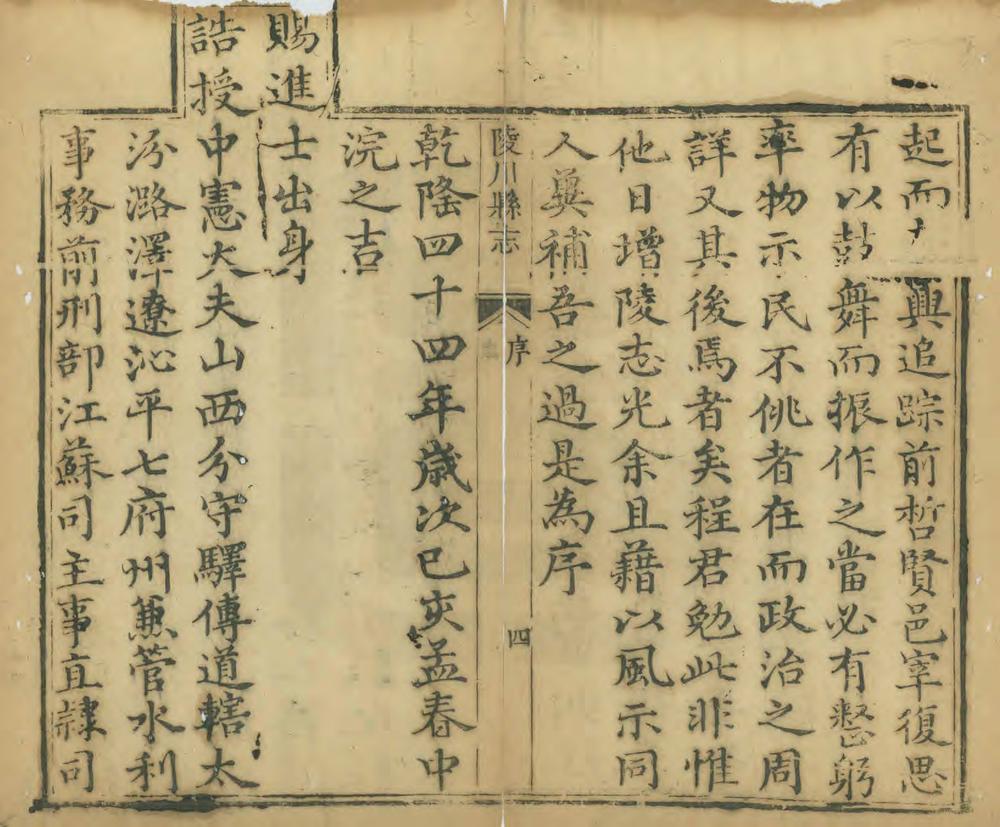 起而興追踪前哲賢邑宰復思
有以鼓舞而振作之當必有整躬
率物示民不佻者在而政治之周
詳又其後焉者矣程君勉此非惟
他日增陵志光余且藉以風示同
人兾補吾之過是為序
陵川縣志 序 四
乾隆四十四年歲次己亥孟春中
浣之吉
賜進士出身
誥授中憲大夫山西分守驛傳道轄太
汾潞澤遼沁平七府州兼管水利
事務前刑部江蘇司主事直隸司